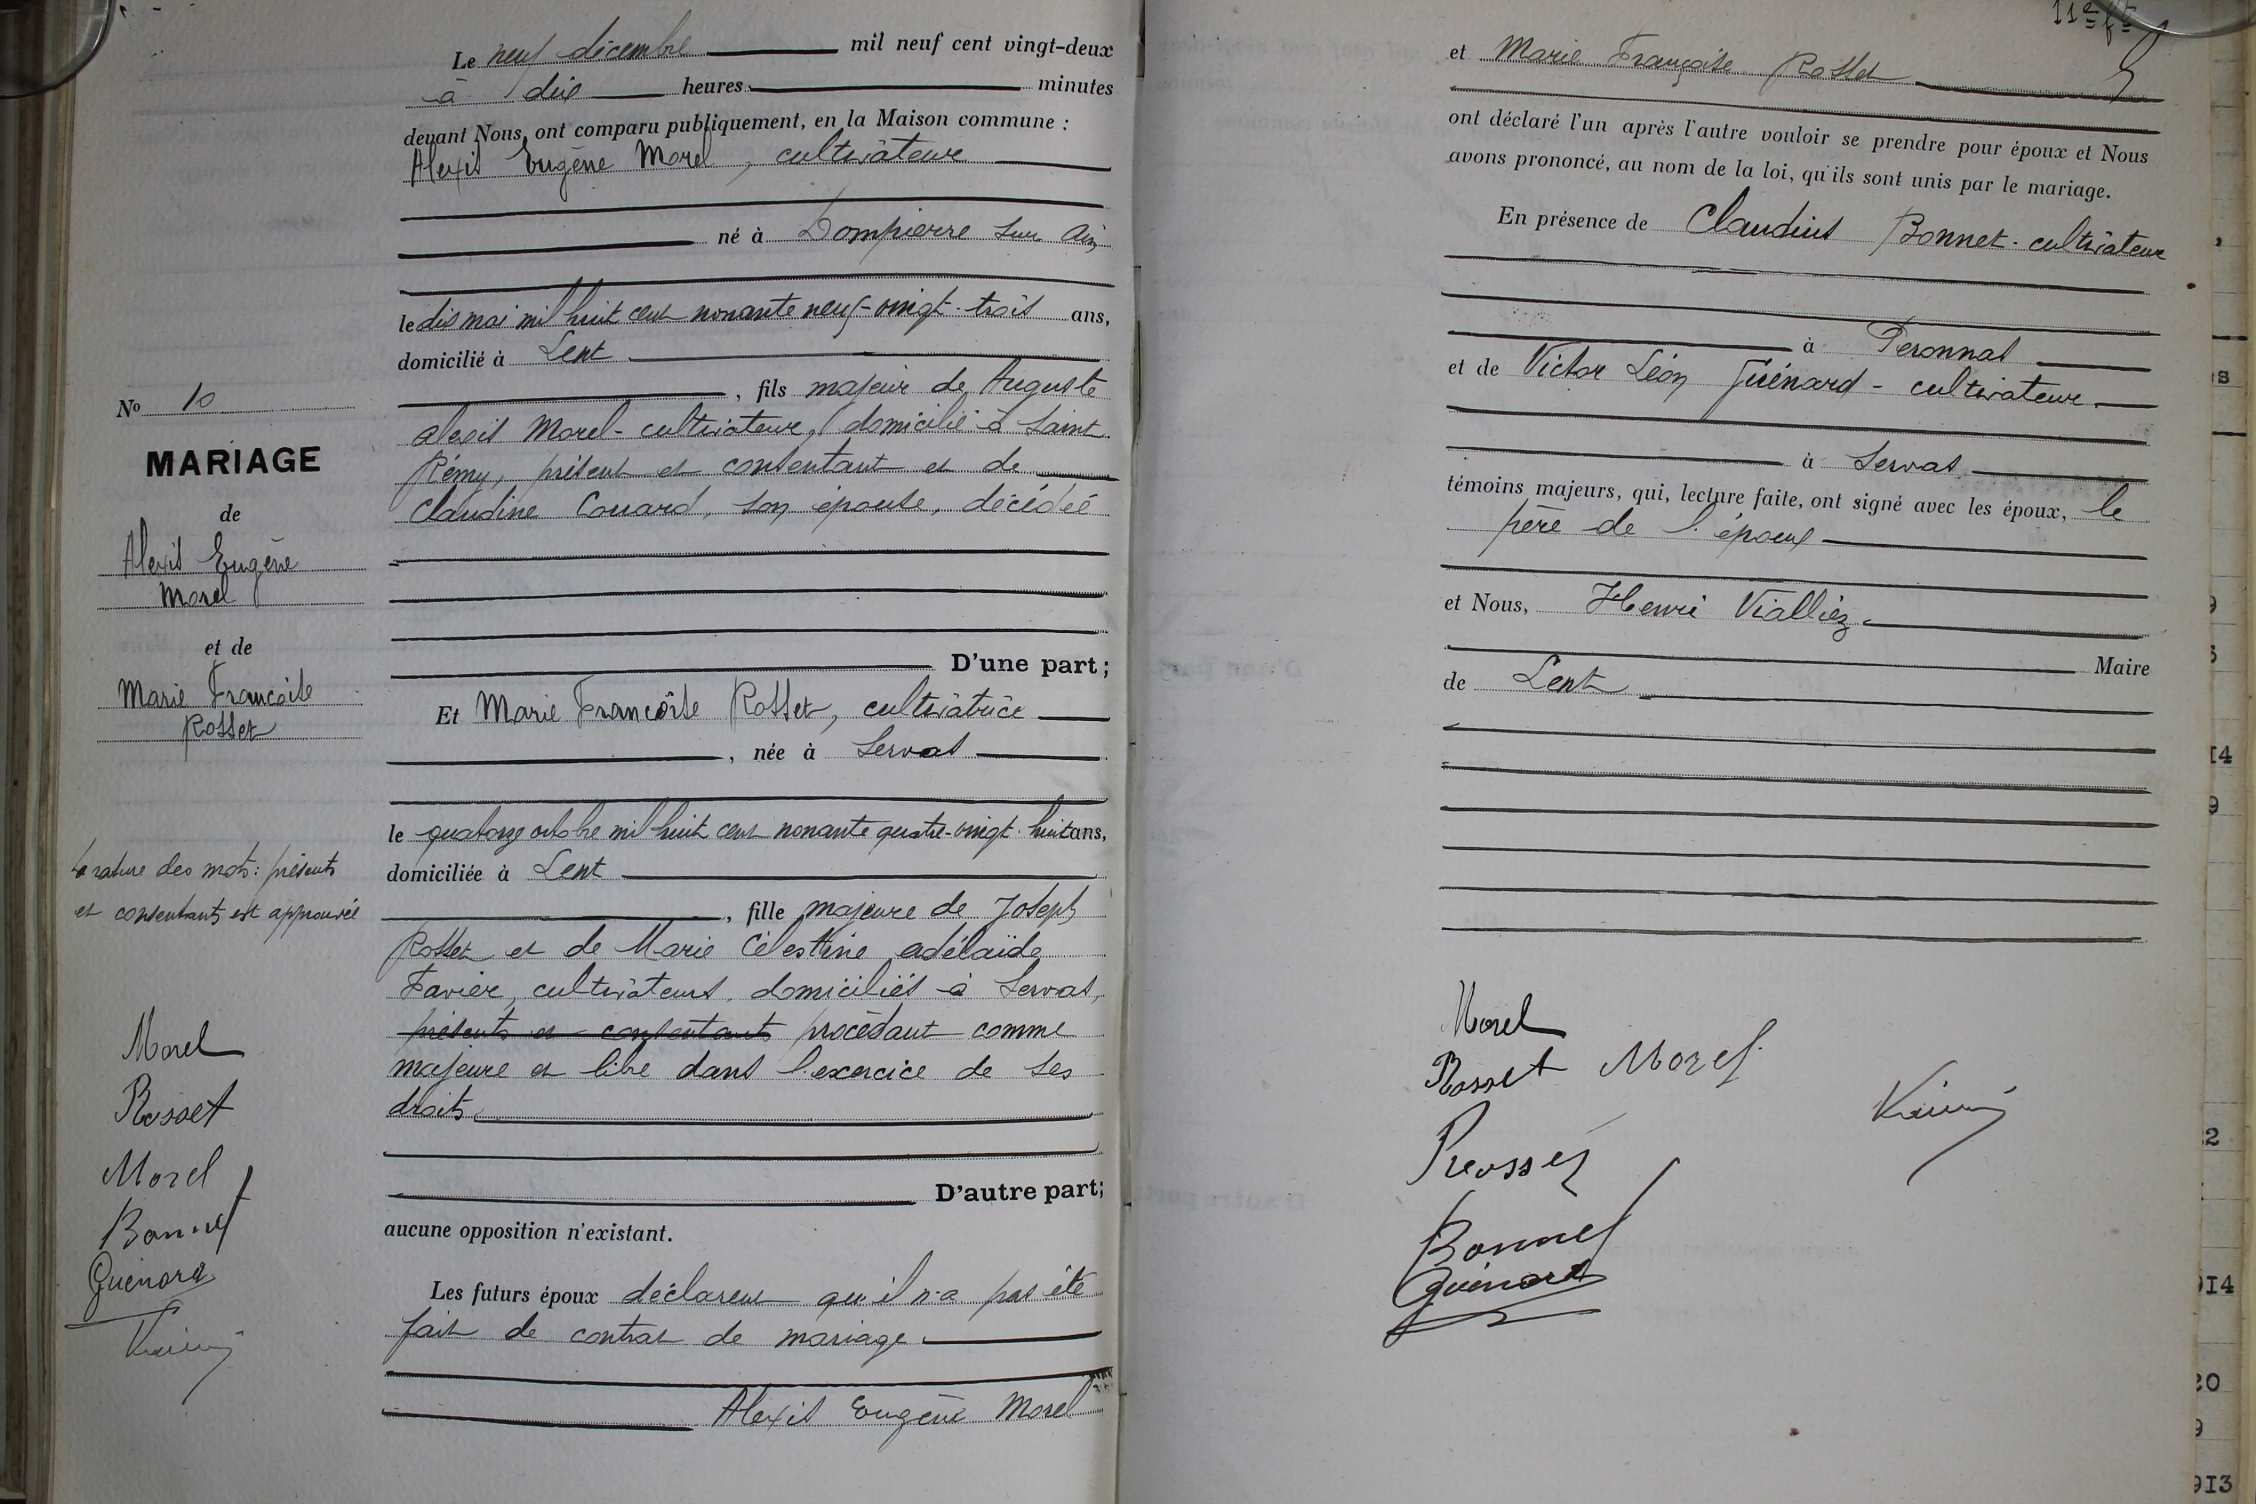 Le neuf décembre mil neuf cent vingt-deux
à dix heures minutes
devant Nous ont comparu publiquement, en la Maison commune :
Alexis Eugène Morel, cultivateur
né à Dompierre sur Ain
le dix mai mil huit cent nonante neuf - vingt-trois ans,
domicilié à Lent
, fils majeur de Auguste
alexis Morel - cultivateur, domicilié à Saint
Rémy, présent et consentant et de
Claudine Couard, son épouse, décédée
D'une part ;
Et Marie Françoise Rosset, cultivatrice
, née à Servas
le quatorze octobre mil huit cent nonante quatre - vingt-huit ans,
domiciliée à Lent
, fille majeure de Joseph
Rosset et de Marie Célestine adélaïde
Favier, cultivateurs, domiciliés à Servas,
présents et consentants procédant comme
majeure et libre dans l'exercice de ses
droits.
D'autre part ;
aucune opposition n'existant.
Les futurs époux déclarent qu'il n'a pas été
fait de contrat de mariage.
Alexis Eugène Morel
No 10
MARIAGE
de
Alexis Eugène
Morel
et de
Marie Françoise
Rosset
La rature des mots : présents
et consentants est approuvée
Morel
Rosset
Morel
Bonnet
Guénard
11e ft
et Marie Françoise Rosset
ont déclaré l'un après l'autre vouloir se prendre pour époux et Nous
avons prononcé, au nom de la loi, qu'ils sont unis par le mariage.
En présence de Claudius Bonnet - cultivateur
à Péronnas
et de Victor Léon Guénard - cultivateur.
à Servas
témoins majeurs, qui, lecture faite, ont signé avec les époux, le
père de l'époux
et Nous, Henri Vialliez.
Maire
de Lent
Morel
Rosset Morel
Bonnet
Guénard
14
2
914
20
9
913